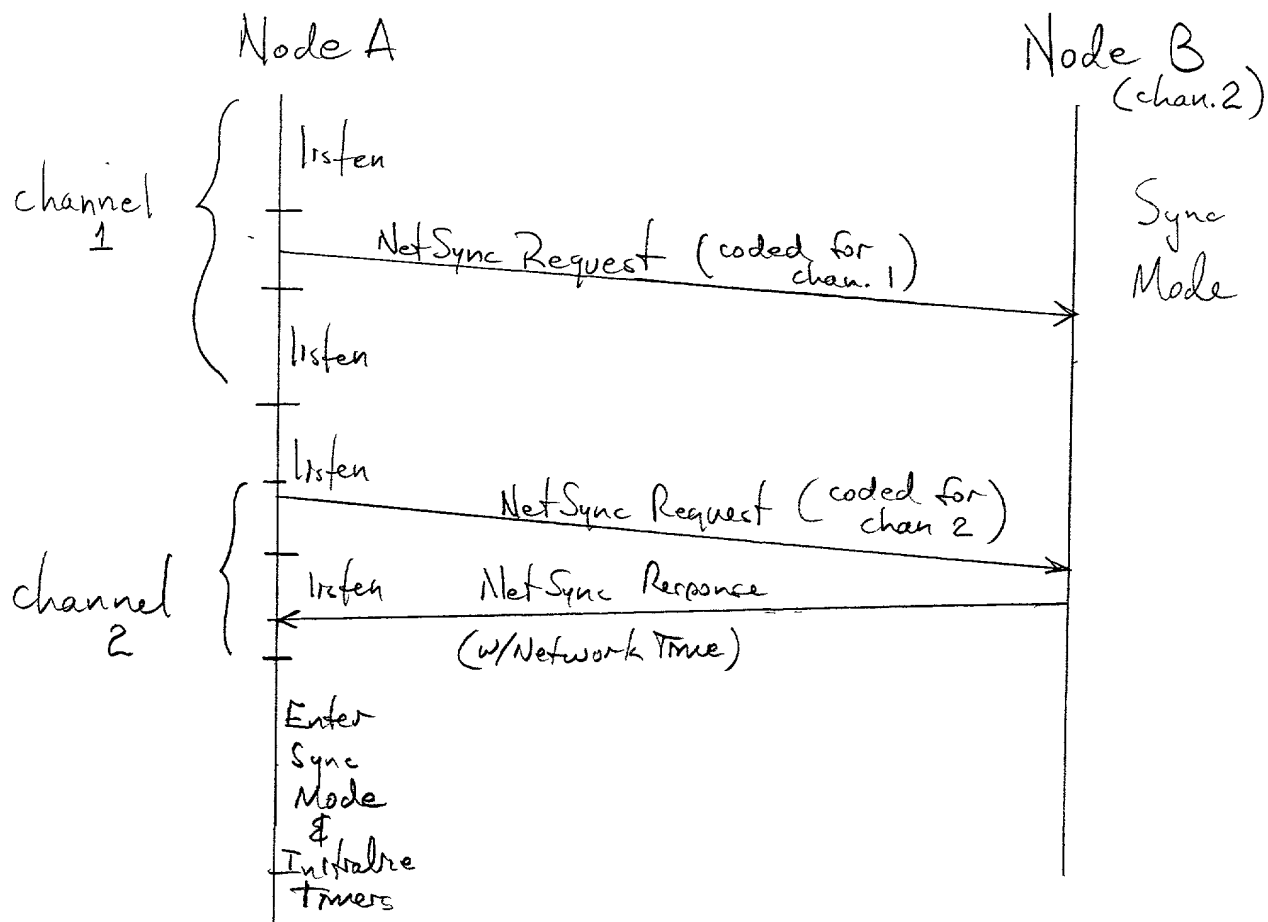 Node A
Node B
(chan. 2)
channel
1
listen
Sync
Mode
NetSync Request (coded for
chan. 1)
listen
listen
NetSync Request (coded for
chan 2)
channel
2
listen
NetSync Response
(w/Network Time)
Enter
Sync
Mode
&
Initialize
Timers